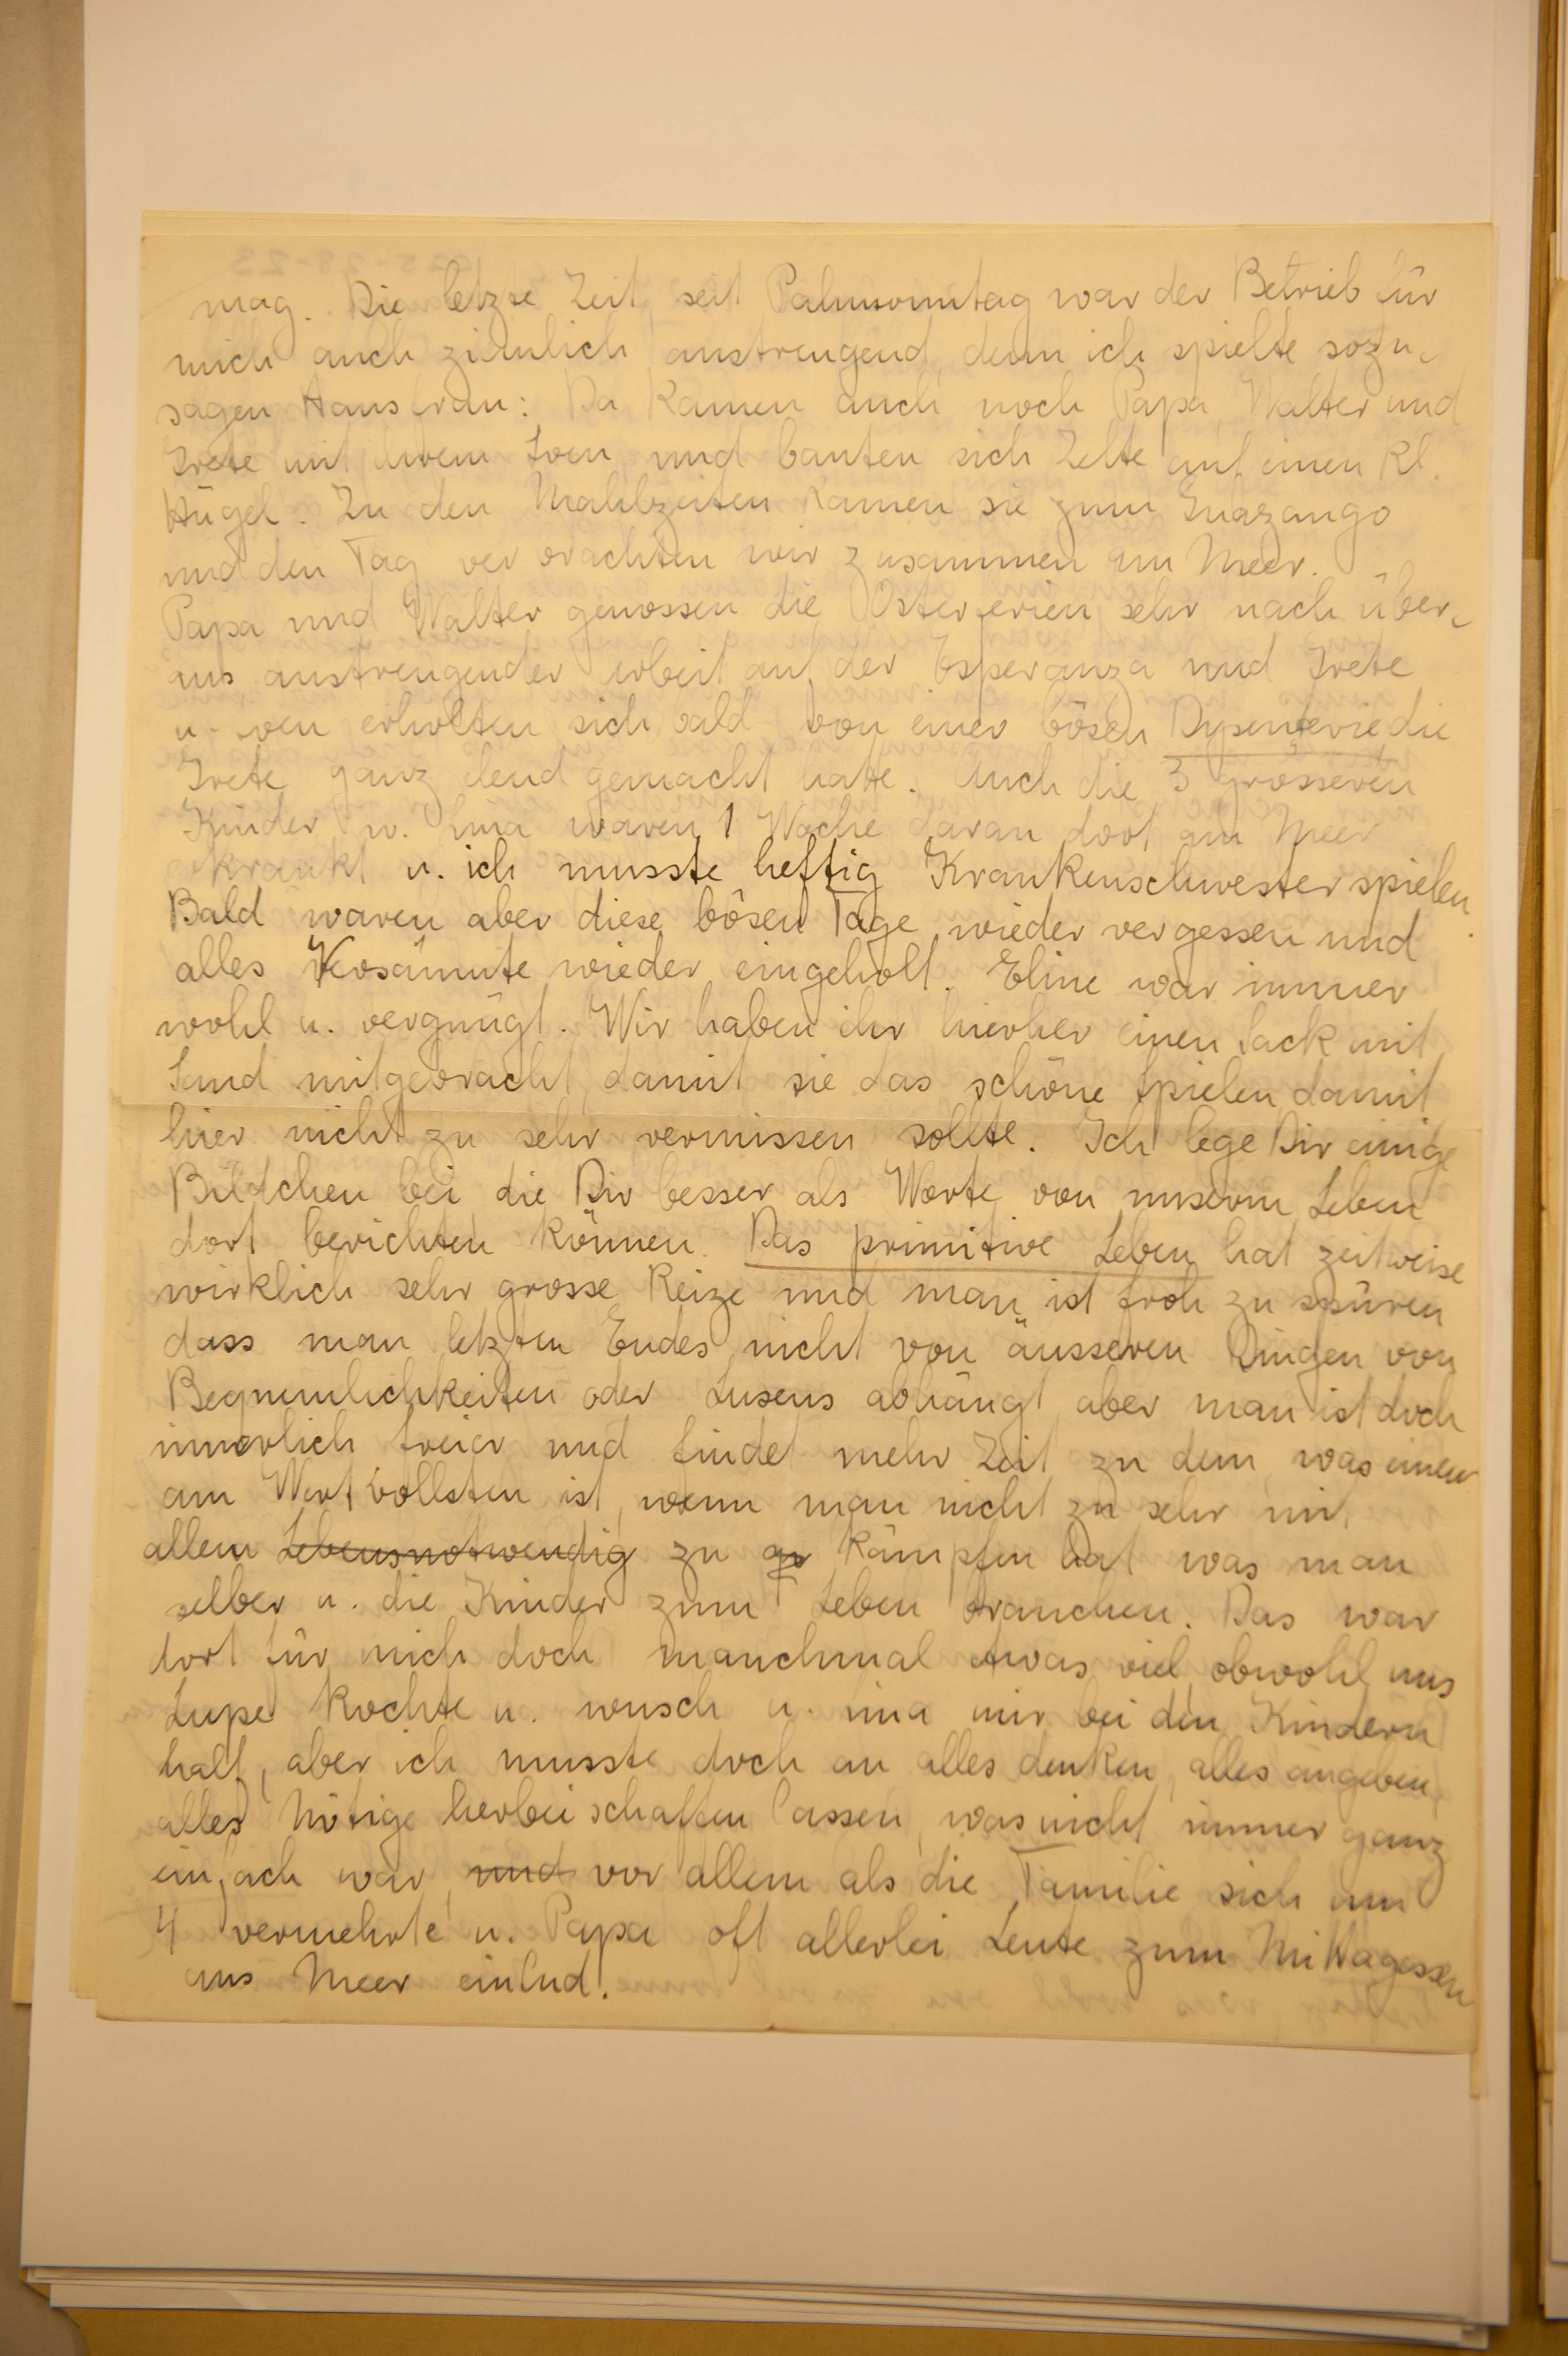 mag. Die letzte Zeit, seit Palmsonntag war der Betrieb für
mich auch ziemlich anstrengend, denn ich spielte sozu-
sagen Hausfrau: Da kamen auch noch Papa, Walter und
Grete mit ihrem Sven und bauten sich Zelte auf einen kl.
Hügel. Zu den Mahlzeiten kamen sie zum
und den Tag verbrachten wir zusammen am Meer.
Papa und Walter genossen die Osterferien sehr nach über-
aus anstrengender Arbeit auf der Esperanza und Grete
u. Sven erholten sich bald von einer bösen Dysenterie, die
Grete ganz elend gemacht hatte. Auch die 3 grösseren
Kinder u. Nina waren 1 Woche daran dort am Meer
erkrankt u. ich musste heftig Krankenschwester spielen.
Bald waren aber diese bösen Tage wieder vergessen und
alles Versäumte wieder eingeholt. Eline war immer
wohl u. vergnügt. Wir haben ihr hierher einen Sack mit
Sand mitgebracht, damit sie das schöne Spielen damit
hier nicht zu sehr vermissen sollte. Ich lege Dir einige
Bildchen bei, die Dir besser als Worte von unserm Leben
dort berichten können. Das primitive Leben hat zeitweise
wirklich sehr grosse Reize und man ist froh zu spüren
dass man letzten Endes nicht von äusseren Dingen von
Bequemlichkeiten oder Luxus abhängt, aber man ist doch
innerlich freier und findet mehr Zeit zu dem was einem
am Wertvollsten ist, wenn man nicht zu sehr mit
allem Lebensnotwendig zu kämpfen hat was man
selber u. die Kinder zum Leben brauchen. Das war
dort für mich doch manchmal etwas viel, obwohl uns
Lupe kochte u. wusch u. Nina mir bei den Kindern
half, aber ich musste doch an alles denken, alles angeben,
alles Nötige herbeischaffen lassen, was nicht immer ganz
einfach war, und vor allem als die Familie sich um
4 vermehrte u. Papa oft allerlei Leute zum Mittagessen
ans Meer einlud.